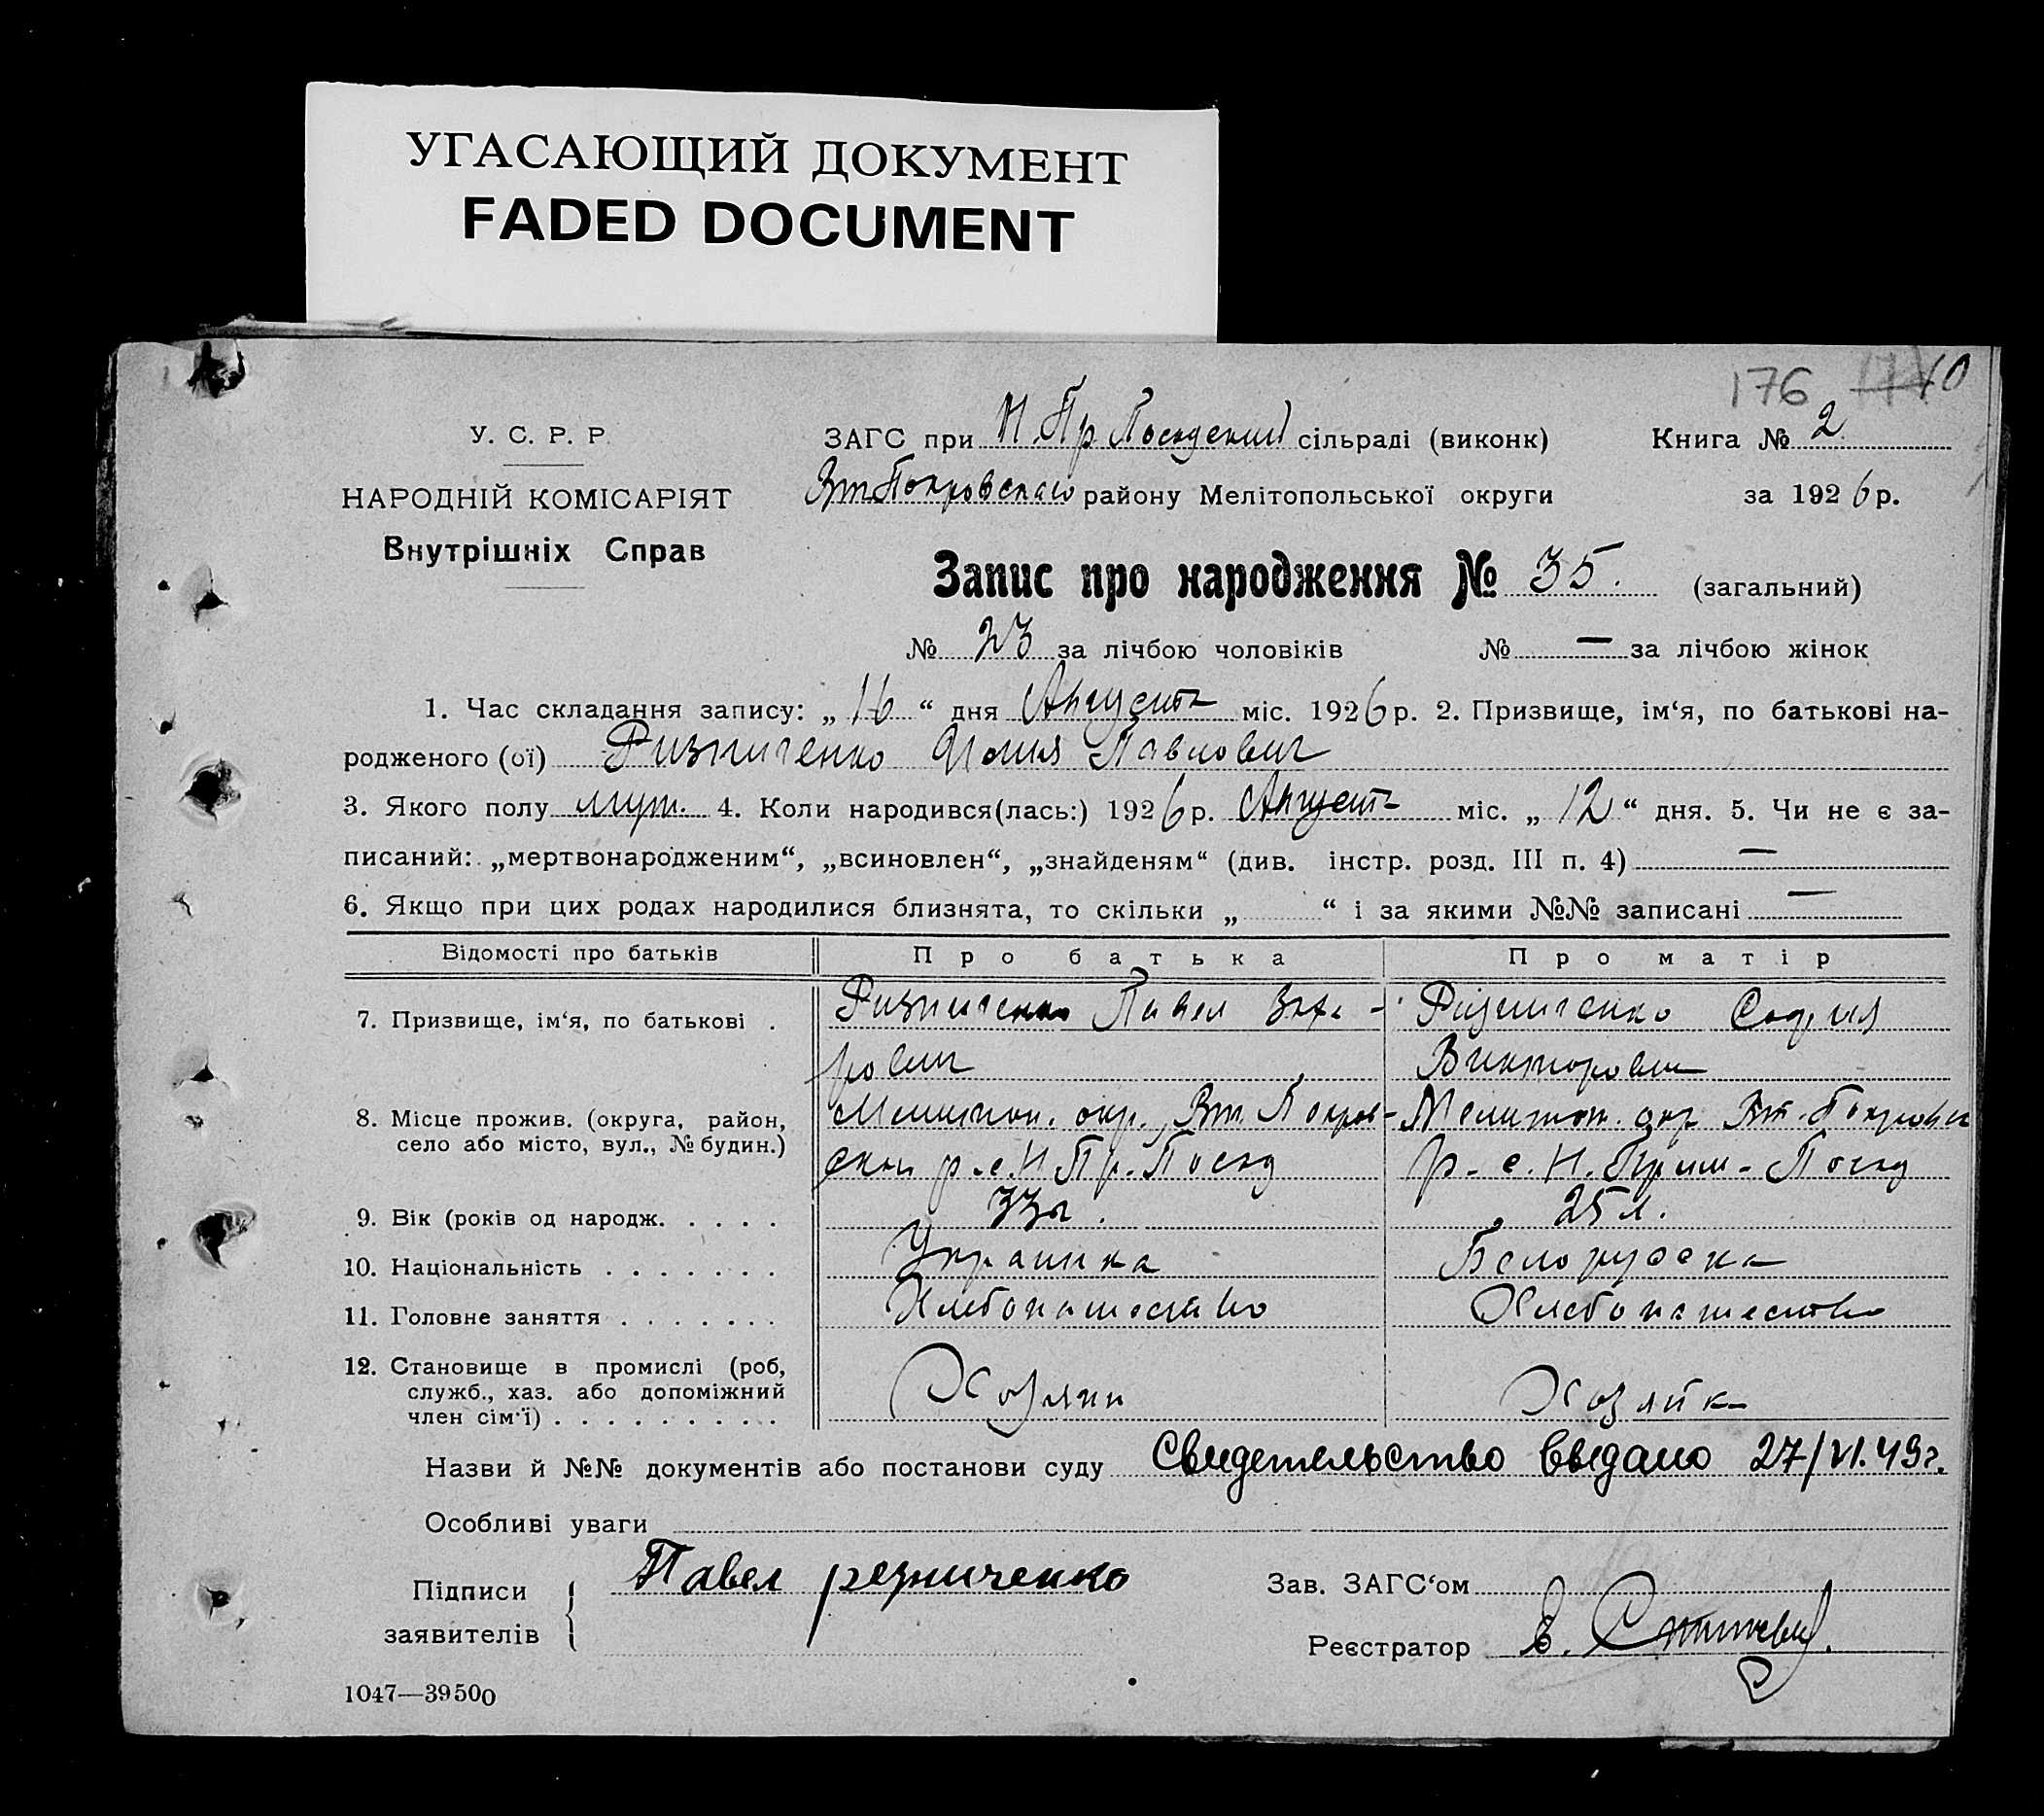 УГАСАЮЩИЙ ДОКУМЕНТ
FADED DOCUMENT
176
У. С. Р. Р.
НАРОДНІЙ КОМІСАРІЯТ
Внутрішніх Справ
ЗАГС при Н. Пр. Посад сільраді (виконк) Книга № 2
Вт. Покровского району Мелітопольської округи за 1926 р.
Запис про народження № 35. (загальний)
№ 23 за лічбою чоловіків № — за лічбою жінок
1. Час складання запису: „16“ дня Август міс. 1926 р. 2. Призвище, ім‘я, по батькові на-
родженого (ої) Ризниченко Павлович
3. Якого полу муж. 4. Коли народився(лась:) 1926 р. Август міс. „12“ дня. 5. Чи не є за-
писаний: „мертвонародженим“, „всиновлен“, „знайденям“ (див. інстр. розд. III п. 4) —
6. Якщо при цих родах народилися близнята, то скільки „ “ і за якими №№ записані —
Відомості про батьків Про батька Про матір
7. Призвище, ім‘я, по батькові . Ризниченко Павел Заха-
рович
Ризниченко София
Викторовн
8. Місце прожив. (округа, район,
село або місто, вул., № будин.)
Мелитоп. окр. Вт. Покров-
ский р. с. Н Пр. Посад
Мелитоп. окр Вт. Покровск
р. с. Н. Приш. Посад
9. Вік (років од народж. . . . . 33 л. 25 л.
10. Національність . . . . . . . Украинка Белоруска
11. Головне заняття . . . . . . . Хлебопашество Хлебопашество
12. Становище в промислі (роб,
служб., хаз. або допоміжний
член сім‘ї) . . . . . . . . . Хозяин Хозяйка
Назви й №№ документів або постанови суду Свидетельство выдано 27/VI.49г.
Особливі уваги
Підписи
заявителів
Павел резниченко
Зав. ЗАГС‘ом
Реєстратор
1047—39500